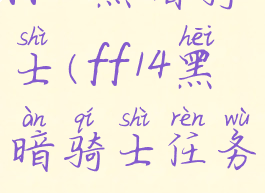 shì hēi
士(ff14黑
àn qí shì rèn wù
暗骑士任务